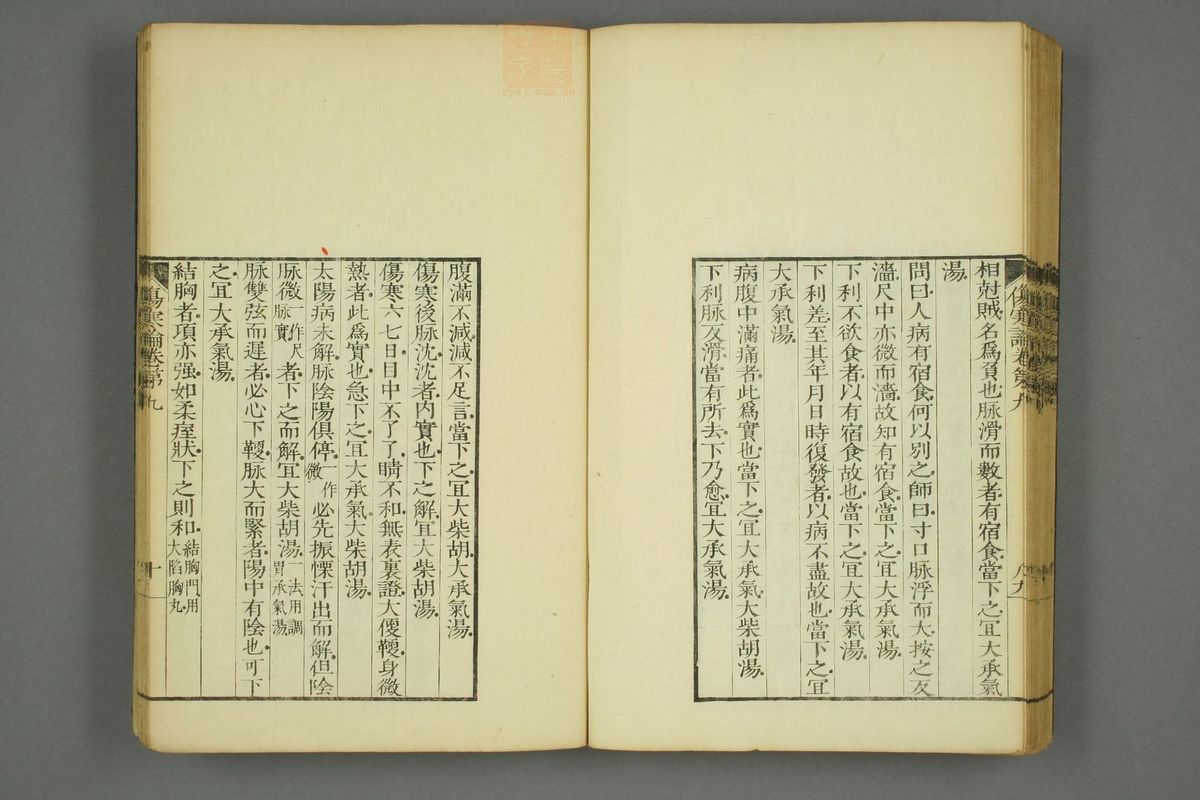 相尅賊名爲負也脉滑而數者有宿食當下之宜大承氣
湯
問曰人病有宿食何以別之師曰寸口脉浮而大按之反
濇尺中亦微而濇故知有宿食當下之宜大承氣湯
下利不欲食者以有宿食故也當下之宜大承氣湯
下利差至其年月日時復發者以病不盡故也當下之宜
大承氣湯
病腹中滿痛者此爲實也當下之宜大承氣大柴胡湯
下利脉反滑當有所去下乃愈宜大承氣湯
腹滿不減減不足言當下之宜大柴胡大承氣湯
傷寒後脉沈沈者內實也下之解宜大柴胡湯
傷寒六七日目中不了了睛不和無表裏證大便鞕身微
熱者此爲實也急下之宜大承氣大柴胡湯
太陽病未解脉陰陽俱停一作微必先振慄汗出而解但陰
脉微一作尺脉實者下之而解宜大柴胡湯一法用調胃承氣湯
脉雙弦而遲者必心下鞕脉大而緊者陽中有陰也可下
之宜大承氣湯
結胸者項亦强如柔痓狀下之則和結胸門用大陷胸丸
傷寒論卷第九
十
zysj.com.cn